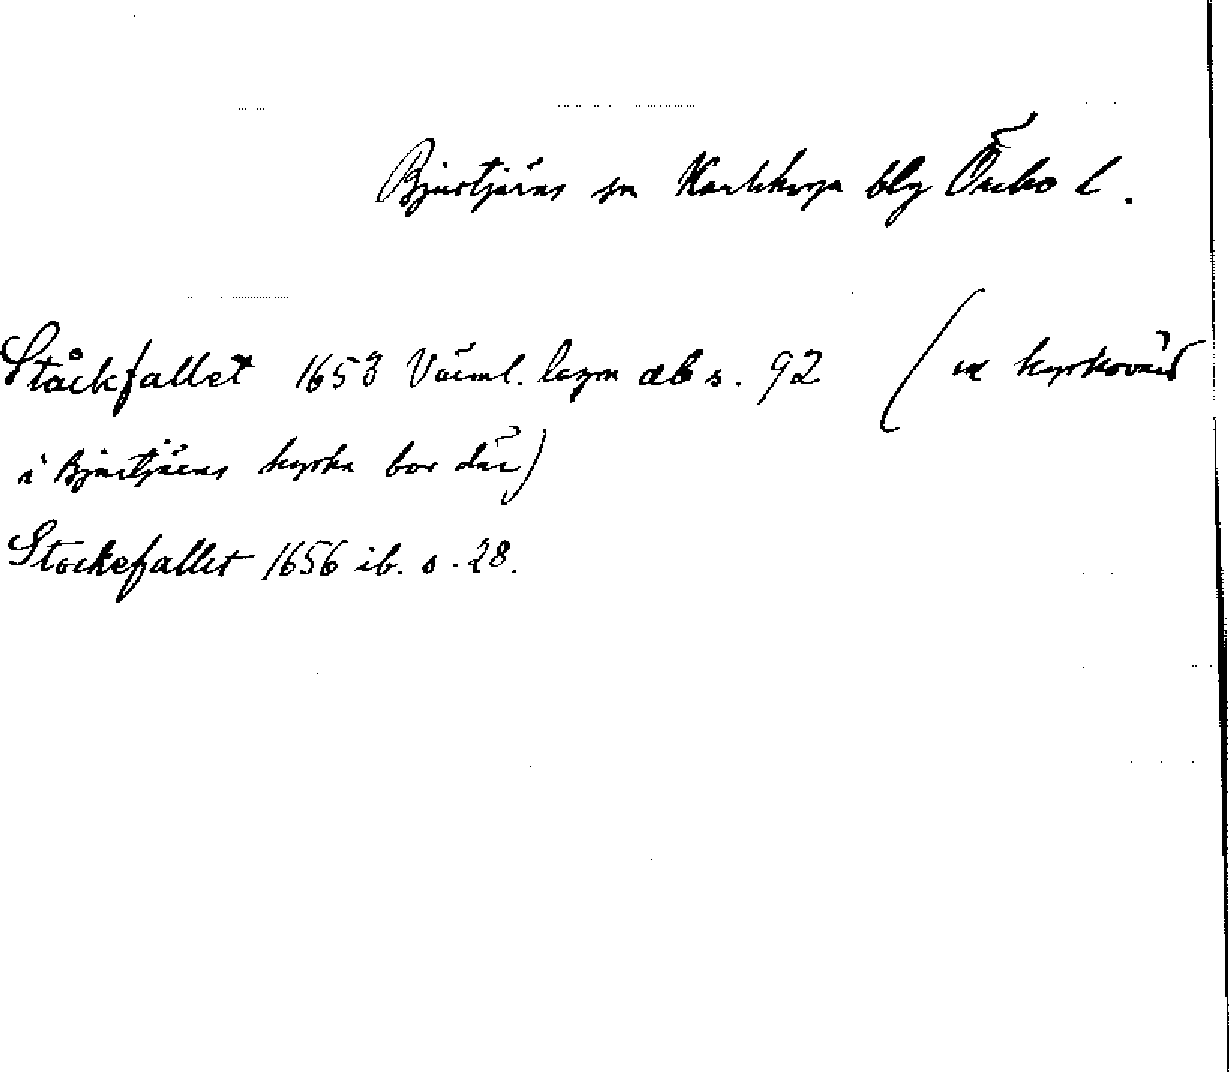 Bjurtjärns sn Karlskoga blg Örebro l.
Ståckfallet 1653 Värml. lagm db s. 92 (en kyrkovärd
i Bjurtjärns kyrka bor där)
Stockefallet 1656 ib. s. 28.